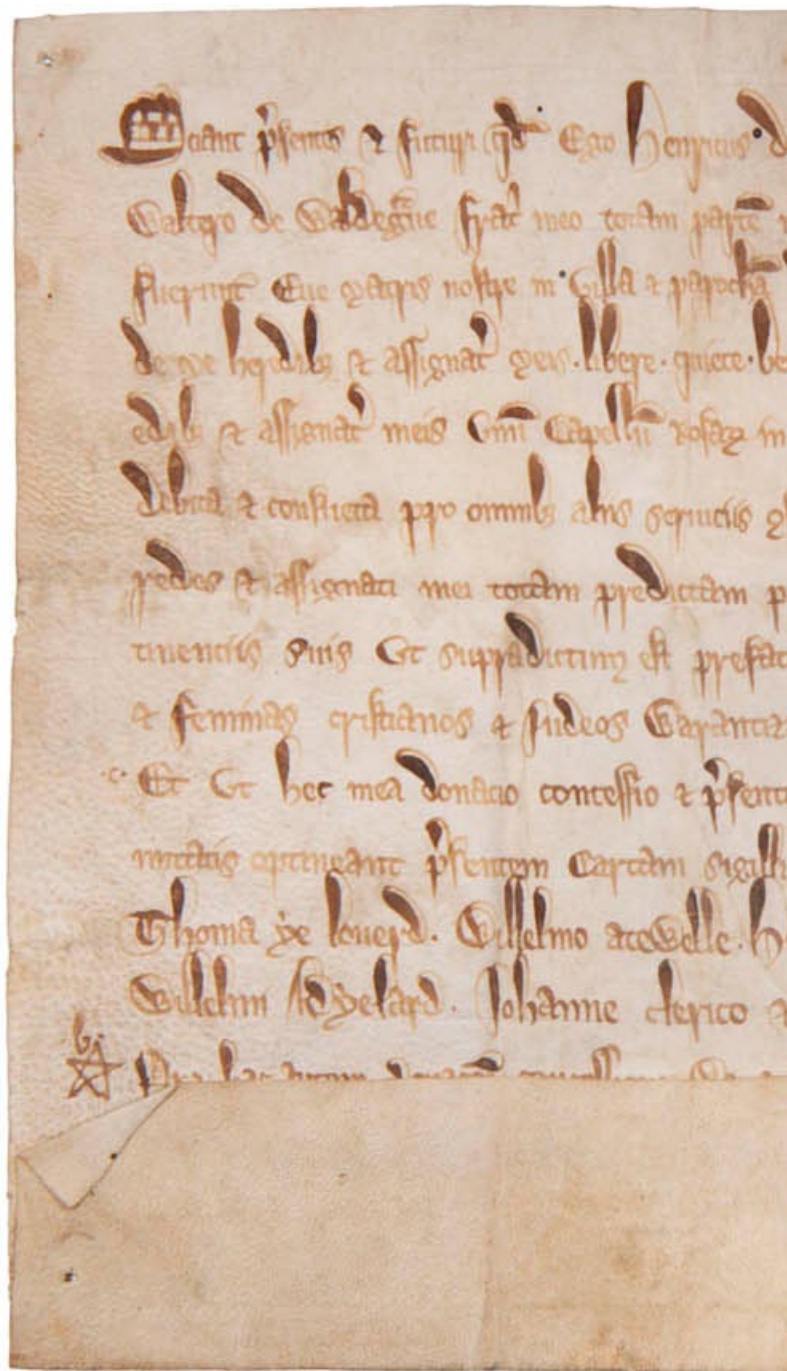 Sciant p'sentes & futuri qd Ego Henricus d
Waltero de Waldegᵃue frat' meo totam partē
fuerunt Eue matris nostre in Villa & parochia
de me hedib; & assignat' meis . libere . quiete . be
edib; & assignat' meis vnū Capellū Rosaꝝ in
debita & consueta pro omnib; aliis seruiciis
redes & assignati mei totam predictam p
tinenciis suis Vt supradictum est prefat
& feminas cristianos & Iudeos Warantiz
c. Et Vt hec mea donacio concessio & p'sent
mitatis optineant p'sentem Cartam sigilli
Thoma þe louerd . Willelmo ateWelle . H
Willelmi Adyelard . Johanne clerico &
b. Pro hac autem